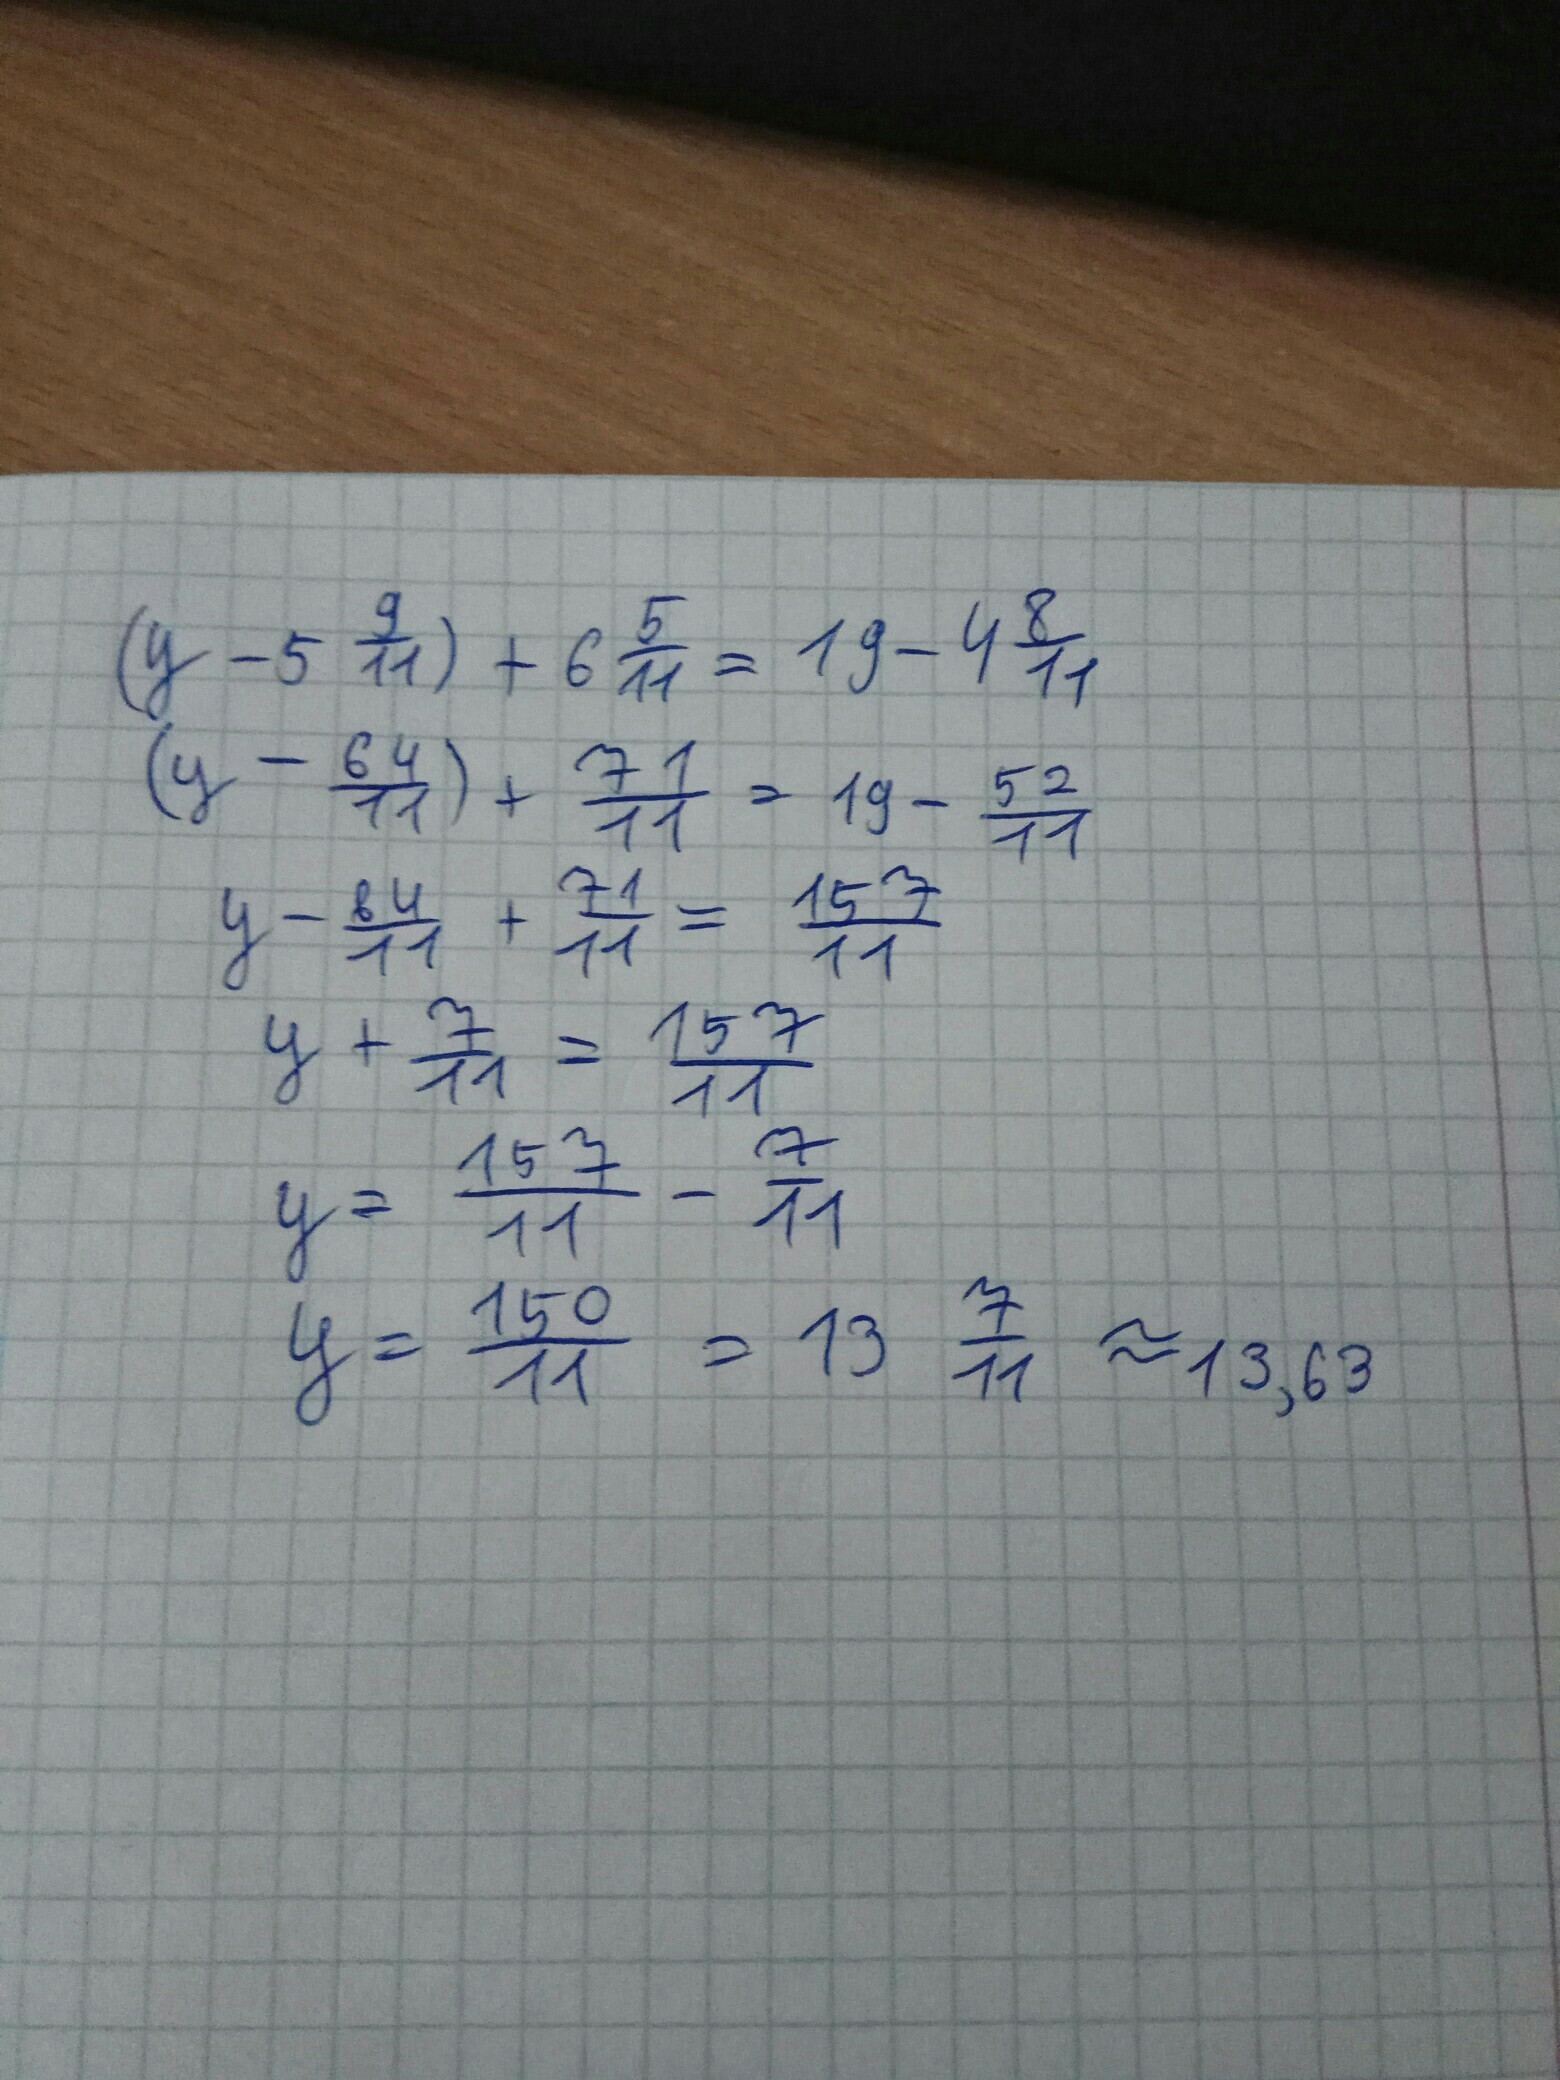 (y - 5 9/11) + 6 5/11 = 19 - 4 8/11
(y - 64/11) + 71/11 = 19 - 52/11
y - 64/11 + 71/11 = 157/11
y + 7/11 = 157/11
y = 157/11 - 7/11
y = 150/11 = 13 7/11 ≈ 13,63